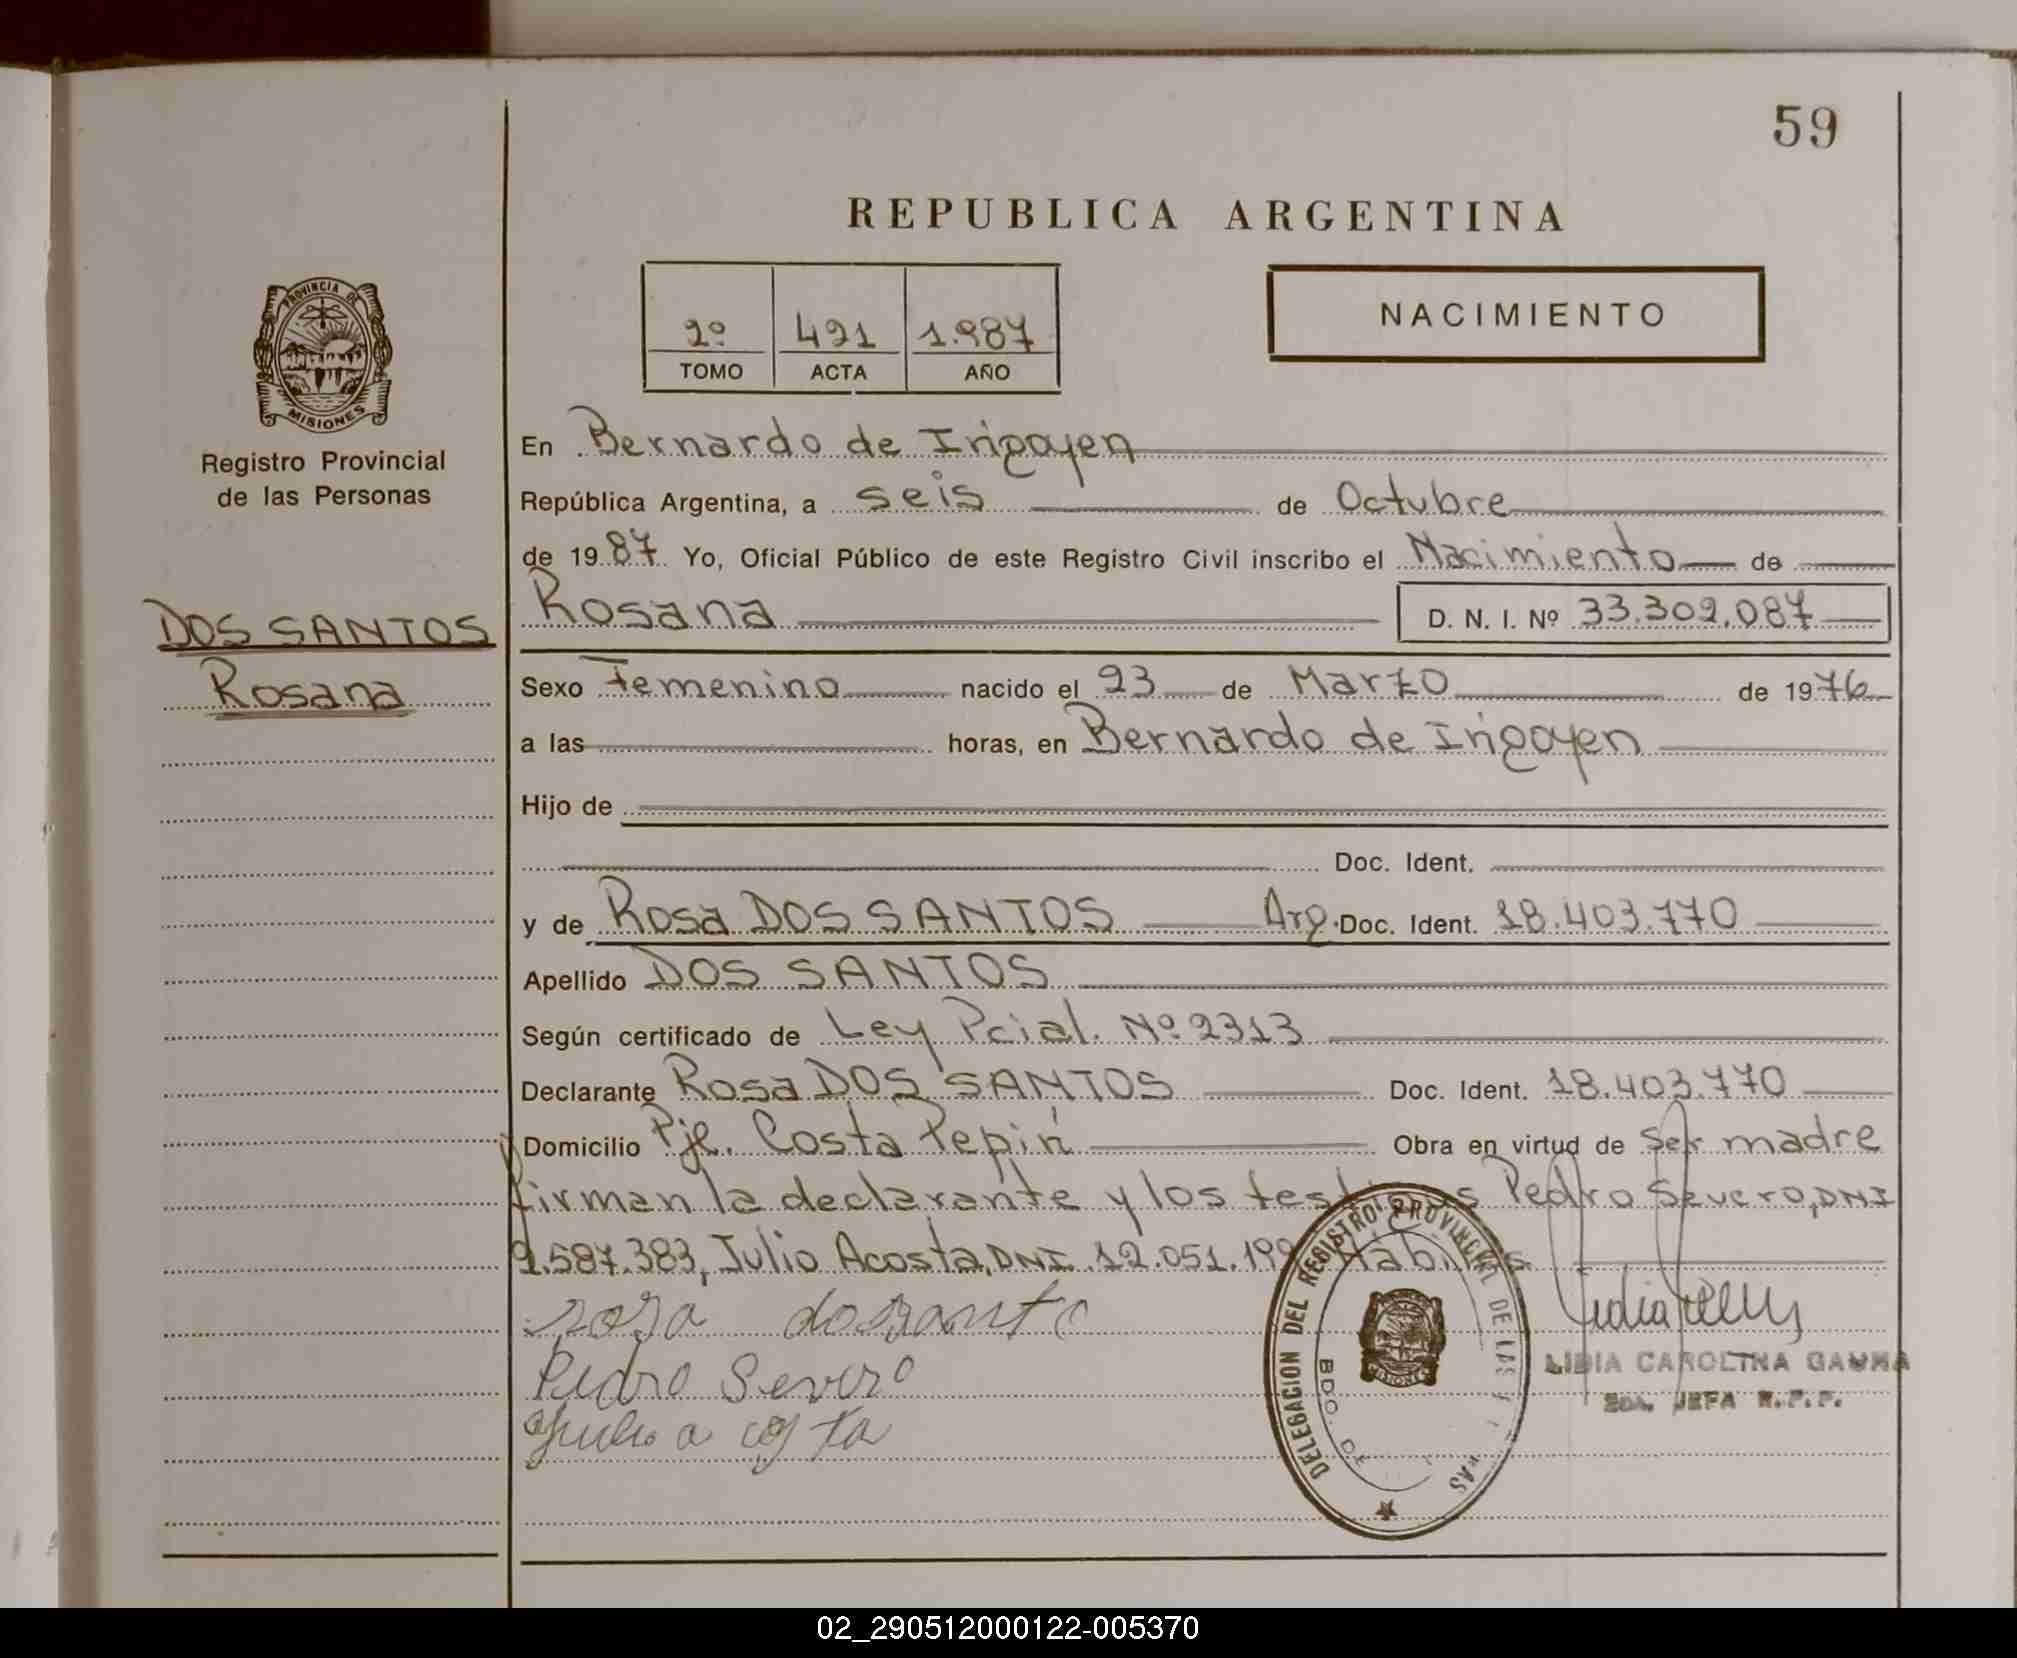 59
REPUBLICA ARGENTINA
2º 421 1.987
TOMO ACTA AÑO
NACIMIENTO
PROVINCIA DE
MISIONES
Registro Provincial
de las Personas
DOS SANTOS
Rosana
En Bernardo de Irigoyen
República Argentina, a seis de Octubre
de 1987 Yo, Oficial Público de este Registro Civil inscribo el Nacimiento de
Rosana D. N. I. Nº 33.302.087
Sexo Femenino nacido el 23 de Marzo de 1976
a las horas, en Bernardo de Irigoyen
Hijo de
Doc. Ident.
y de Rosa DOS SANTOS Arg. Doc. Ident. 18.403.770
Apellido DOS SANTOS
Según certificado de Ley Pcial. Nº 2313
Declarante Rosa DOS SANTOS Doc. Ident. 18.403.770
Domicilio Pje. Costa Pepin Obra en virtud de ser madre
firman la declarante y los testigos Pedro Severo, DNI
9.587.383, Julio Acosta, DNI. 12.051. Hábiles
rosa dossanto
Pedro Severo
Julio a costa
DELEGACION DEL REGISTRO PROVINCIAL DE LAS
BDO. DE
LIDIA CAROLINA
2DA. JEFA R.P.P.
02_290512000122-005370